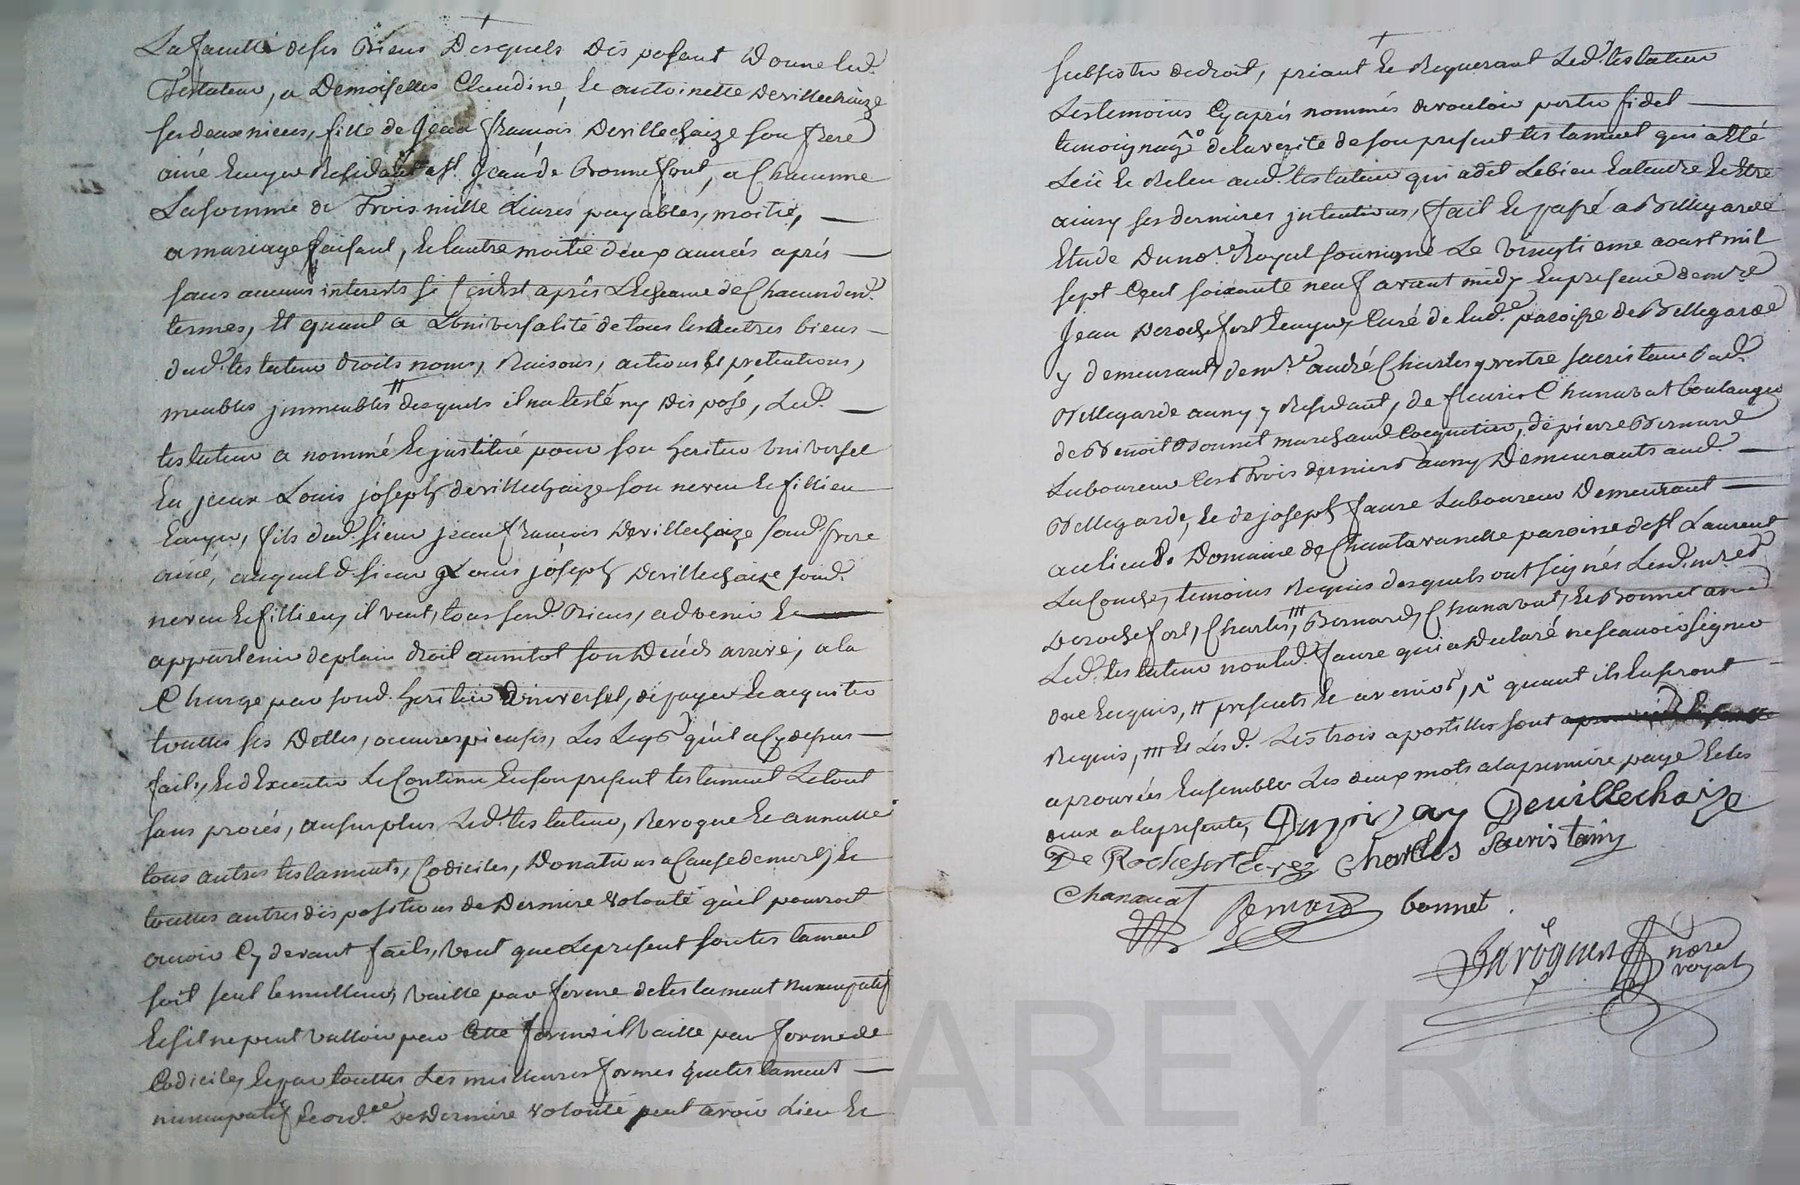 La faculté de ses Biens Desquels Disposant Donne led.
Testateur, a Demoiselles Claudine, & antoinette Devillechaize
ses deux nieces, fille de Jean françois Devillechaize son frere
ainé Ecuyer Residant a St. Jean de Bonnefont, a Chacunne
La somme de Trois mille Livres payables, moitié,
a mariage faisant, & l'autre moitié deux années après
sans aucuns interests si ce n'est après L'Echeance de Chacun desd.
termes, Et quant a L'universalité de tous les autres biens
dud. testateur droits noms, Raisons, actions & pretentions,
meubles immeubles # desquels il n'a testé ny Disposé, Led.
testateur a nommé & institué pour son heritier Universel
Louis joseph devillechaize son neveu & fillieu
Ecuyer, fils dud. sieur jean françois Devillechaize sond. frere
ainé, auquel d. sieur Louis joseph Devillechaize sond.
neveu & fillieu, il veut, tous sesd. Biens, advenir &
appartenir de plain droit aussitot son Décès arrivé, a la
Charge par sond. heritier Universel, de payer & acquitter
touttes ses Dettes, oeuvres pieuses, Les Legs qu'il a Cy dessus
faits, & d'Executer Le Contenu En son present testament Le tout
sans procès, au surplus Led. testateur, Revoque & annulle
tous autres testaments, Codiciles, Donations a Cause de mort, &
touttes autres dispositions de Derniere volonté qu'il pourroit
avoir Cy devant faits, Veut que Le present son testament
soit seul le meilleur, vaille par forme de testament nuncupatif
& s'il ne peut valloir par Cette forme il vaille par forme de
Codicile, & par touttes Les meilleures formes que testament
nuncupatif & ord.ce de Derniere volonté peut avoir Lieu &
subsister de droit, priant & Requerant Led. testateur
Les temoins Cy après nommés de vouloir porter fidel
temoignage de la verité de son present testament qui a eté
Leü & Releu aud. testateur qui a dit Le bien Entendre & Etre
ainsy ses dernieres intentions, fait & passé a Bellegarde
Etude Du no.re Royal soussigné Le vingtieme aoust mil
sept Cent soixante neuf avant midy En presence de m.re
Jean Derochefort Ecuyer, Curé de lad. paroisse de Bellegarde
y demeurant, de m.re andré Charles prestre sacristain dud.
Bellegarde aussy y Residant, de fleurie Chanavat boulanger
de Benoit Bonnet marchand Cocquetier, de pierre Bernard
Laboureur Ces Trois derniers aussy Demeurants aud.
Bellegarde, & de joseph faure Laboureur Demeurant
au lieu & Domaine de Chantavanelle paroisse de St Laurent
La Conche, temoins Requis desquels ont signés Lesd. m.res
Derochefort, Charles, ### Bernard, Chanavat, & Bonnet avec
Led. testateur non led. faure qui a Declaré ne scavoir signer
de ce Enquis, # presents & avenir, quant ils le seront
Requis, ### & Lesd. Les trois apostilles sont
aprouvées Ensemble Les deux mots a la premiere page & les
deux a la presente, Dupizay Devillechaize
De Rochefort Curé Charles Sacristain
Chanavat Bernard bonnet.
no.re
royal